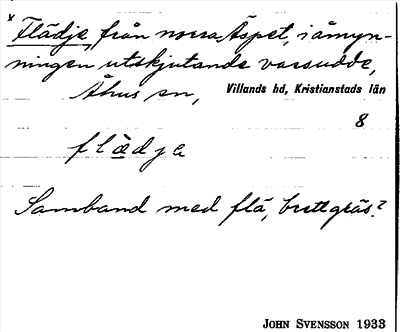 × Flädje, från norra Äspet, i åmyn-
ningen utskjutande vassudde,
Åhus sn, Villands hd, Kristianstads län
8
flädja
Samband med flä, brett gräs?
JOHN SVENSSON 1933